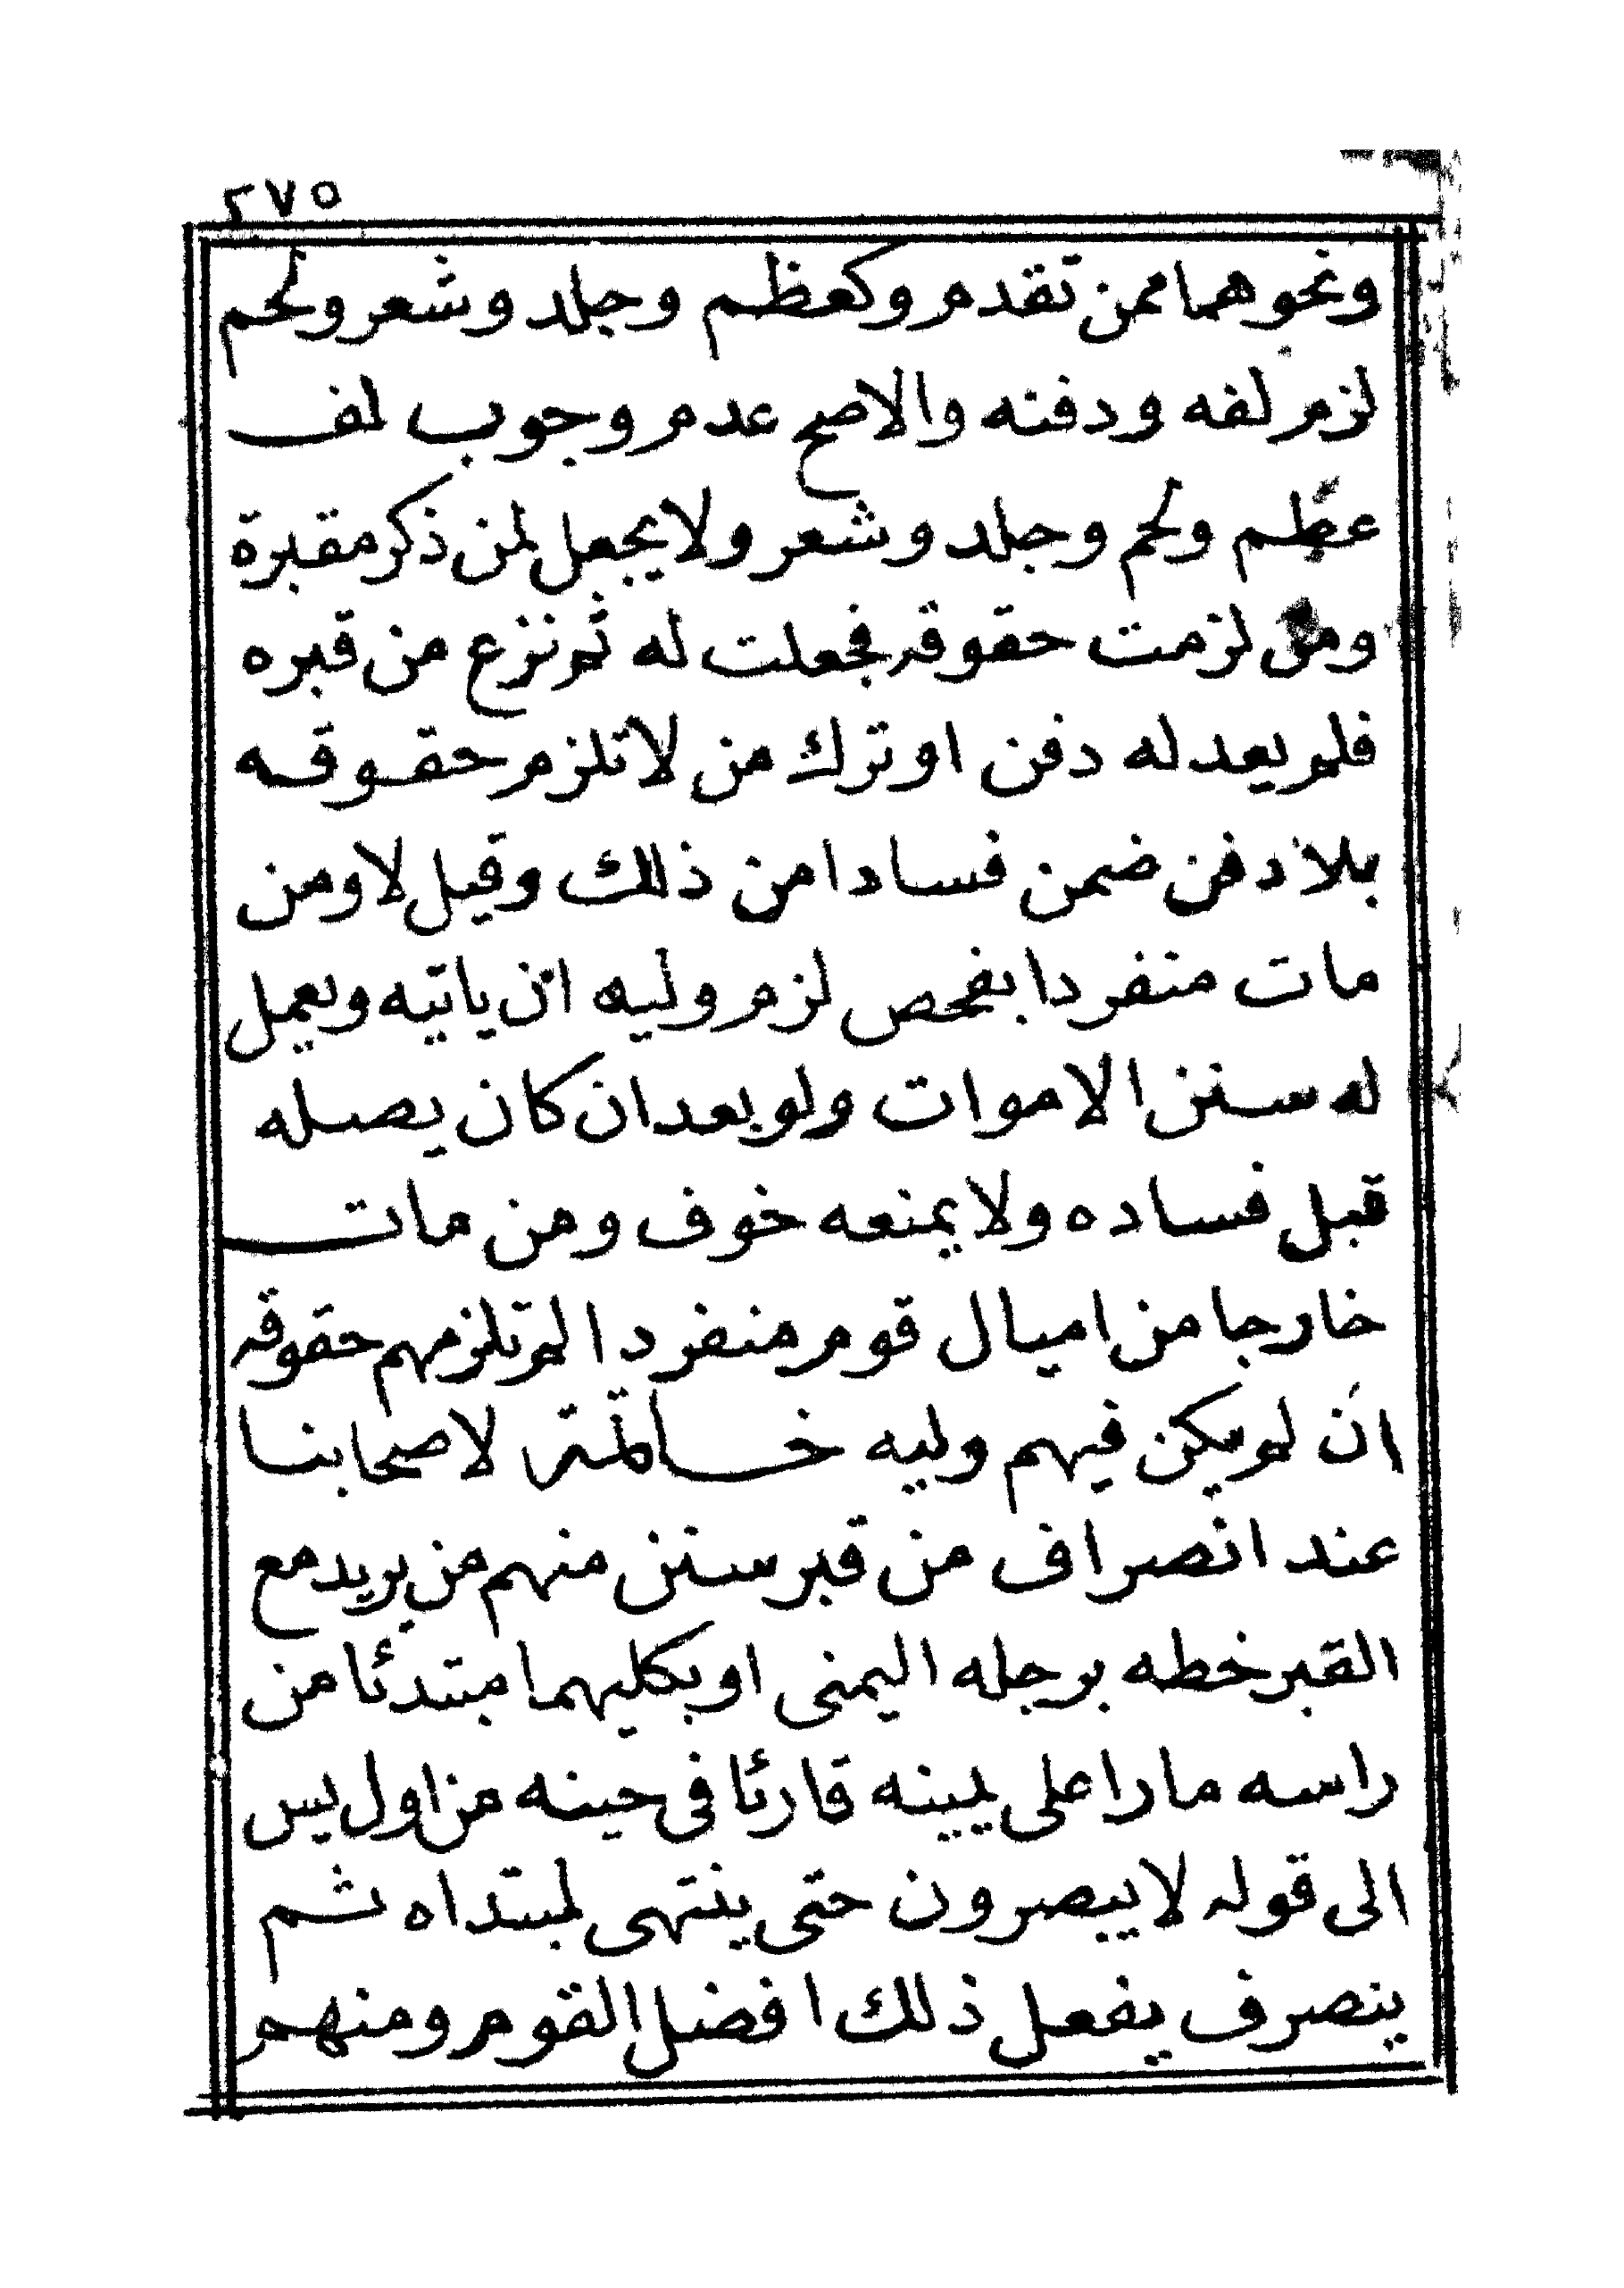 ٢٧٥
ونحوهما ممن تقدم وكعظم وجلد وشعر ولحم
لزم لفه ودفنه والاصح عدم وجوب لف
عظم ولحم وجلد وشعر ولا يجعل لمن ذكر مقبرة
ومن لزمت حقوقه فجعلت له ثم نزع من قبره
فلم يعد له دفن او ترك من لا تلزم حقوقه
بلا دفن ضمن فسادا من ذلك وقيل لا ومن
مات منفردا بفحص لزم وليه ان ياتيه ويعمل
له سنن الاموات ولو بعد ان كان يصله
قبل فساده ولا يمنعه خوف ومن مات
خارجا من اميال قوم منفردا لم تلزمهم حقوقه
ان لم يكن فيهم وليه خاتمة لاصحابنا
عند انصراف من قبر سنن منهم من يريد مع
القبر خطه برجله اليمنى او بكليهما مبتدئا من
راسه مارا على يمينه قارئا في حينه من اول يس
الى قوله لا يبصرون حتى ينتهى لمبتداه ثم
ينصرف يفعل ذلك افضل القوم ومنهم